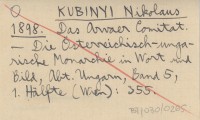 KUBINYI Nikolaus
1898. Das Arvaer Comitat.
— Die Österreichisch-unga-
rische Monarchie in Wort und
Bild, Abt. Ungarn, Band 5,
1. Hälfte (Wien): 355.